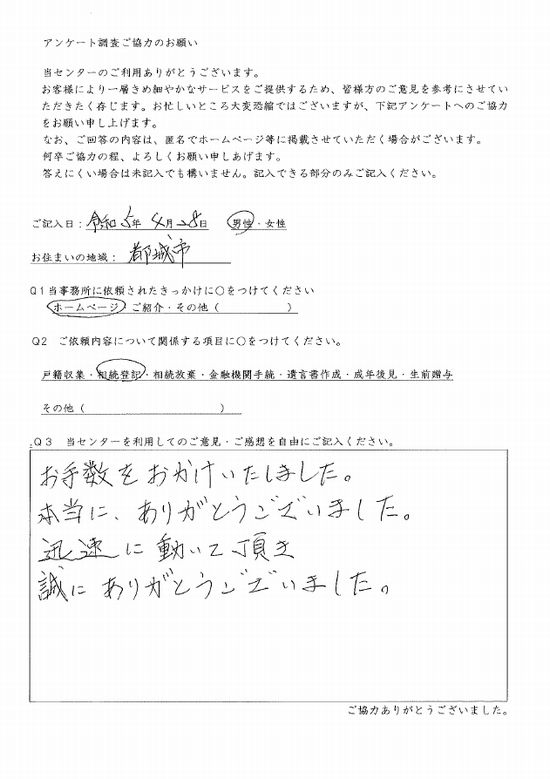 アンケート調査ご協力のお願い
当センターのご利用ありがとうございます。
お客様により一層きめ細やかなサービスをご提供するため、皆様方のご意見を参考にさせていただきたく存じます。お忙しいところ大変恐縮ではございますが、下記アンケートへのご協力をお願い申し上げます。
なお、ご回答の内容は、匿名でホームページ等に掲載させていただく場合がございます。
何卒ご協力の程、よろしくお願い申しあげます。
答えにくい場合は未記入でも構いません。記入できる部分のみご記入ください。
ご記入日：令和5年 4月28日 男性・女性
お住まいの地域： 都城市
Q1当事務所に依頼されたきっかけに○をつけてください
ホームページ・ご紹介・その他（ ）
Q2 ご依頼内容について関係する項目に○をつけてください。
戸籍収集・相続登記・相続放棄・金融機関手続・遺言書作成・成年後見・生前贈与
その他（ ）
Q3 当センターを利用してのご意見・ご感想を自由にご記入ください。
お手数をおかけいたしました。
本当に、ありがとうございました。
迅速に動いて頂き
誠にありがとうございました。
ご協力ありがとうございました。